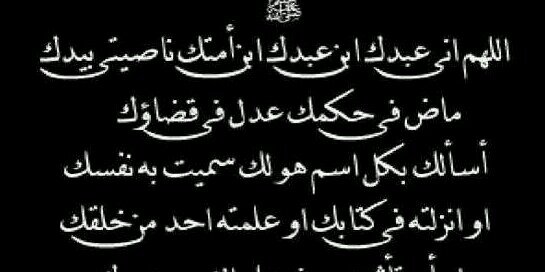 اللهم انى عبدك ابن عبدك ابن أمتك ناصيتى بيدك
ماض فى حكمك عدل فى قضاؤك
أسألك بكل اسم هو لك سميت به نفسك
او انزلته فى كتابك او علمته احد من خلقك